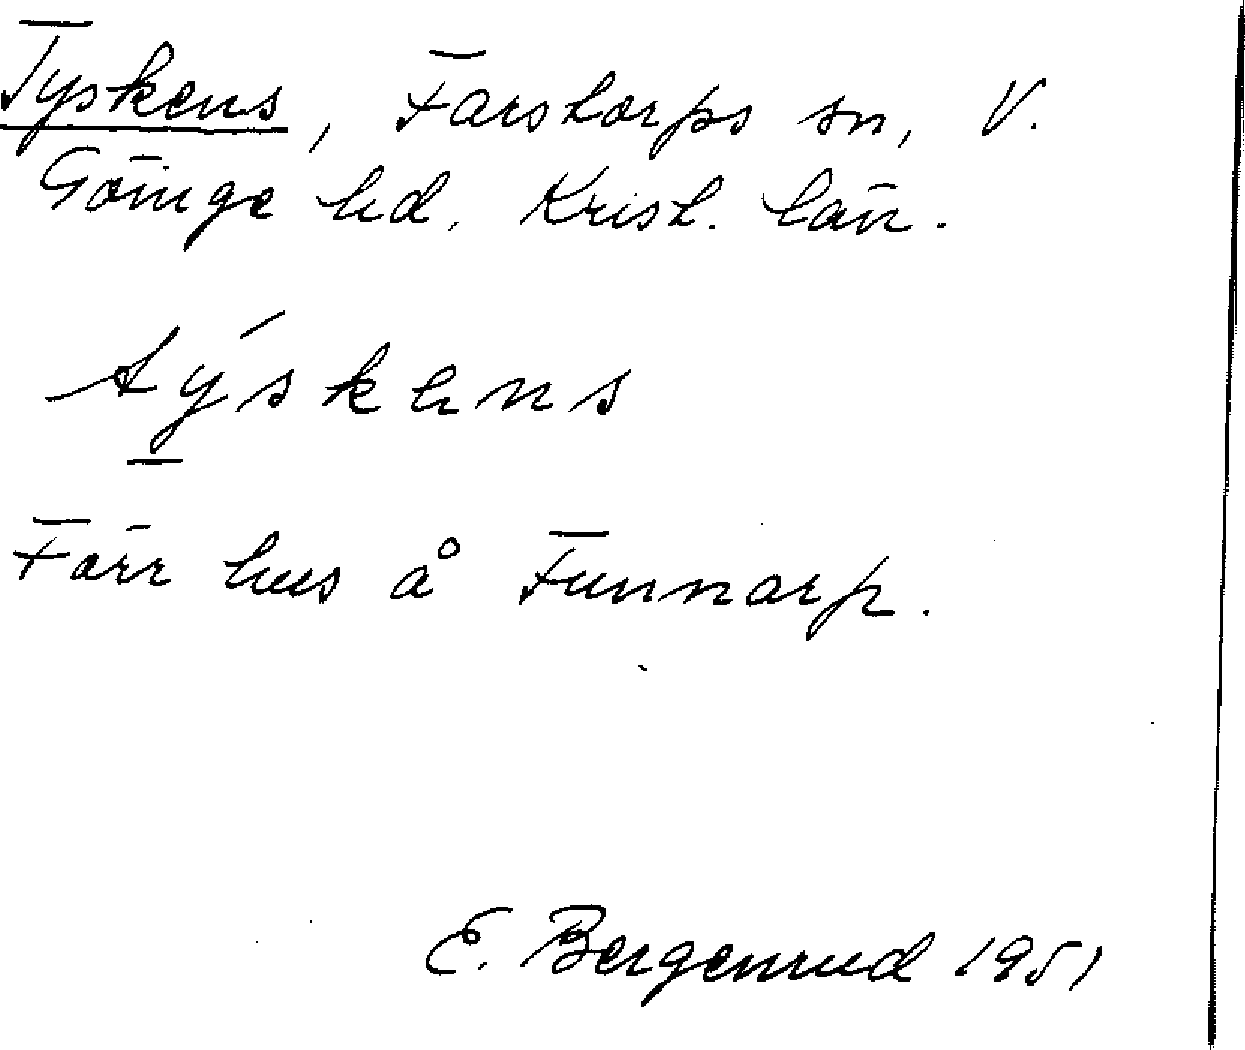 Tyskens, Farstorps sn, V.
Göinge hd. Krist. län.
týskens
Förr hus å Funnarp.
E. Bergenrud 1951